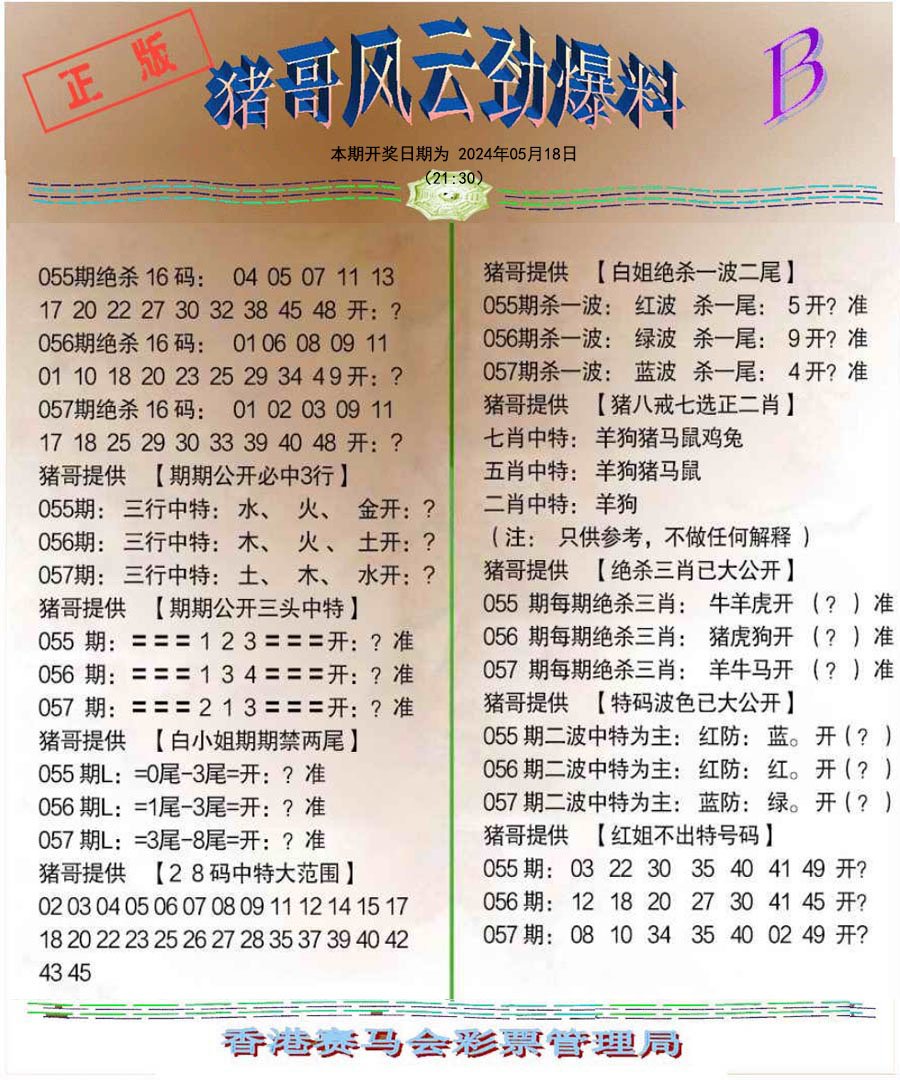 正版
猪哥风云劲爆料
B
本期开奖日期为 2024年05月18日
（21:30）
055期绝杀16码： 04 05 07 11 13
17 20 22 27 30 32 38 45 48 开：?
056期绝杀16码： 01 06 08 09 11
01 10 18 20 23 25 29 34 4 9 开：?
057期绝杀16码： 01 02 03 09 11
17 18 25 29 30 33 39 40 48 开：?
猪哥提供 【期期公开必中3行】
055期：三行中特：水、 火、 金开：?
056期：三行中特：木、 火、 土开：?
057期：三行中特：土、 木、 水开：?
猪哥提供 【期期公开三头中特】
055 期：＝＝＝1 2 3＝＝＝开：? 准
056 期：＝＝＝1 3 4＝＝＝开：? 准
057 期：＝＝＝2 1 3＝＝＝开：? 准
猪哥提供 【白小姐期期禁两尾】
055期L：=0尾-3尾=开：? 准
056期L：=1尾-3尾=开：? 准
057期L：=3尾-8尾=开：? 准
猪哥提供 【2 8码中特大范围】
02 03 04 05 06 07 08 09 11 12 14 15 17
18 20 22 23 25 26 27 28 35 37 39 40 42
43 45
猪哥提供 【白姐绝杀一波二尾】
055期杀一波： 红波 杀一尾： 5开? 准
056期杀一波： 绿波 杀一尾： 9开? 准
057期杀一波： 蓝波 杀一尾： 4开? 准
猪哥提供 【猪八戒七选正二肖】
七肖中特： 羊狗猪马鼠鸡兔
五肖中特： 羊狗猪马鼠
二肖中特： 羊狗
（注： 只供参考，不做任何解释 ）
猪哥提供 【绝杀三肖已大公开】
055 期每期绝杀三肖： 牛羊虎开 （? ）准
056 期每期绝杀三肖： 猪虎狗开 （? ）准
057 期每期绝杀三肖： 羊牛马开 （? ）准
猪哥提供 【特码波色已大公开】
055期二波中特为主：红防：蓝。开（? ）
056期二波中特为主：红防：红。开（? ）
057期二波中特为主：蓝防：绿。开（? ）
猪哥提供 【红姐不出特号码】
055期： 03 22 30 35 40 41 49 开?
056期： 12 18 20 27 30 41 45 开?
057期： 08 10 34 35 40 02 49 开?
香港赛马会彩票管理局